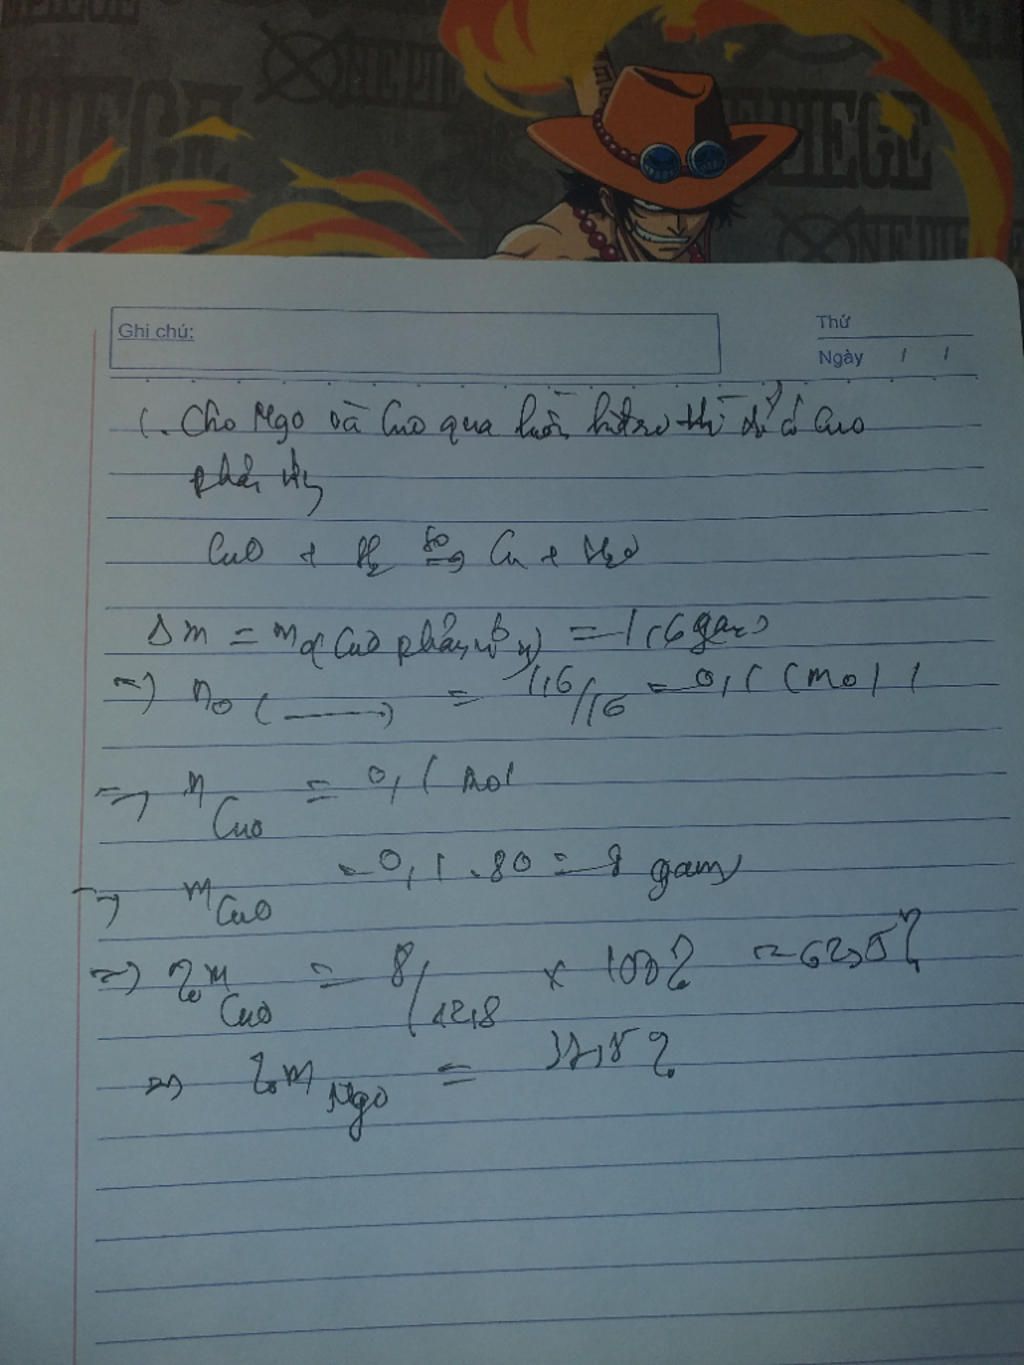 ONE PIECE
PIECE
PIECE
ONE PIECE
Ghi chú:
Thứ
Ngày / /
1. Cho MgO và CuO qua luồng hidro thì chỉ có CuO
phản ứng
CuO + H₂ t⁰→ Cu + H₂O
Δm = m O(CuO phản ứng) = 1,6 gam
=> nO (⟶) = 1,6/16 = 0,1 (mol)
=> nCuO = 0,1 mol
=> mCuO = 0,1 . 80 = 8 gam
=> %mCuO = 8/12,8 × 100% = 62,5%
=> %mMgO = 37,5%